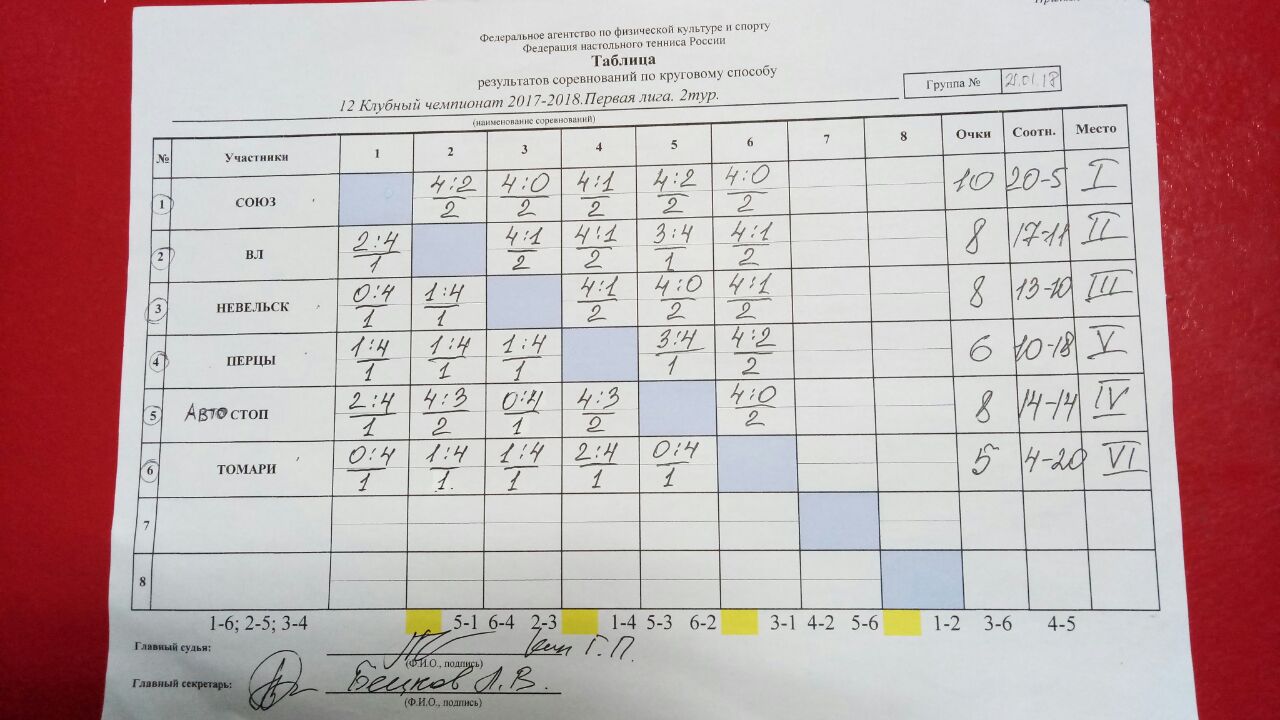 Федеральное агентство по физической культуре и спорту
Федерация настольного тенниса России
Таблица
результатов соревнований по круговому способу
Группа № 21.01.18
12 Клубный чемпионат 2017-2018.Первая лига. 2тур.
(наименование соревнований)
№ Участники 1 2 3 4 5 6 7 8 Очки Соотн. Место
1 СОЮЗ 4:2 4:0 4:1 4:2 4:0 10 20-5 I
2 2 2 2 2
2 ВЛ 2:4 4:1 4:1 3:4 4:1 8 17-11 II
1 2 2 1 2
3 НЕВЕЛЬСК 0:4 1:4 4:1 4:0 4:1 8 13-10 III
1 1 2 2 2
4 ПЕРЦЫ 1:4 1:4 1:4 3:4 4:2 6 10-18 V
1 1 1 1 2
5 АВТО СТОП 2:4 4:3 0:4 4:3 4:0 8 14-14 IV
1 2 1 2 2
6 ТОМАРИ 0:4 1:4 1:4 2:4 0:4 5 4-20 VI
1 1 1 1 1
7
8
1-6; 2-5; 3-4 5-1 6-4 2-3 1-4 5-3 6-2 3-1 4-2 5-6 1-2 3-6 4-5
Главный судья: Г.П.
(Ф.И.О., подпись)
Главный секретарь: А.В.
(Ф.И.О., подпись)